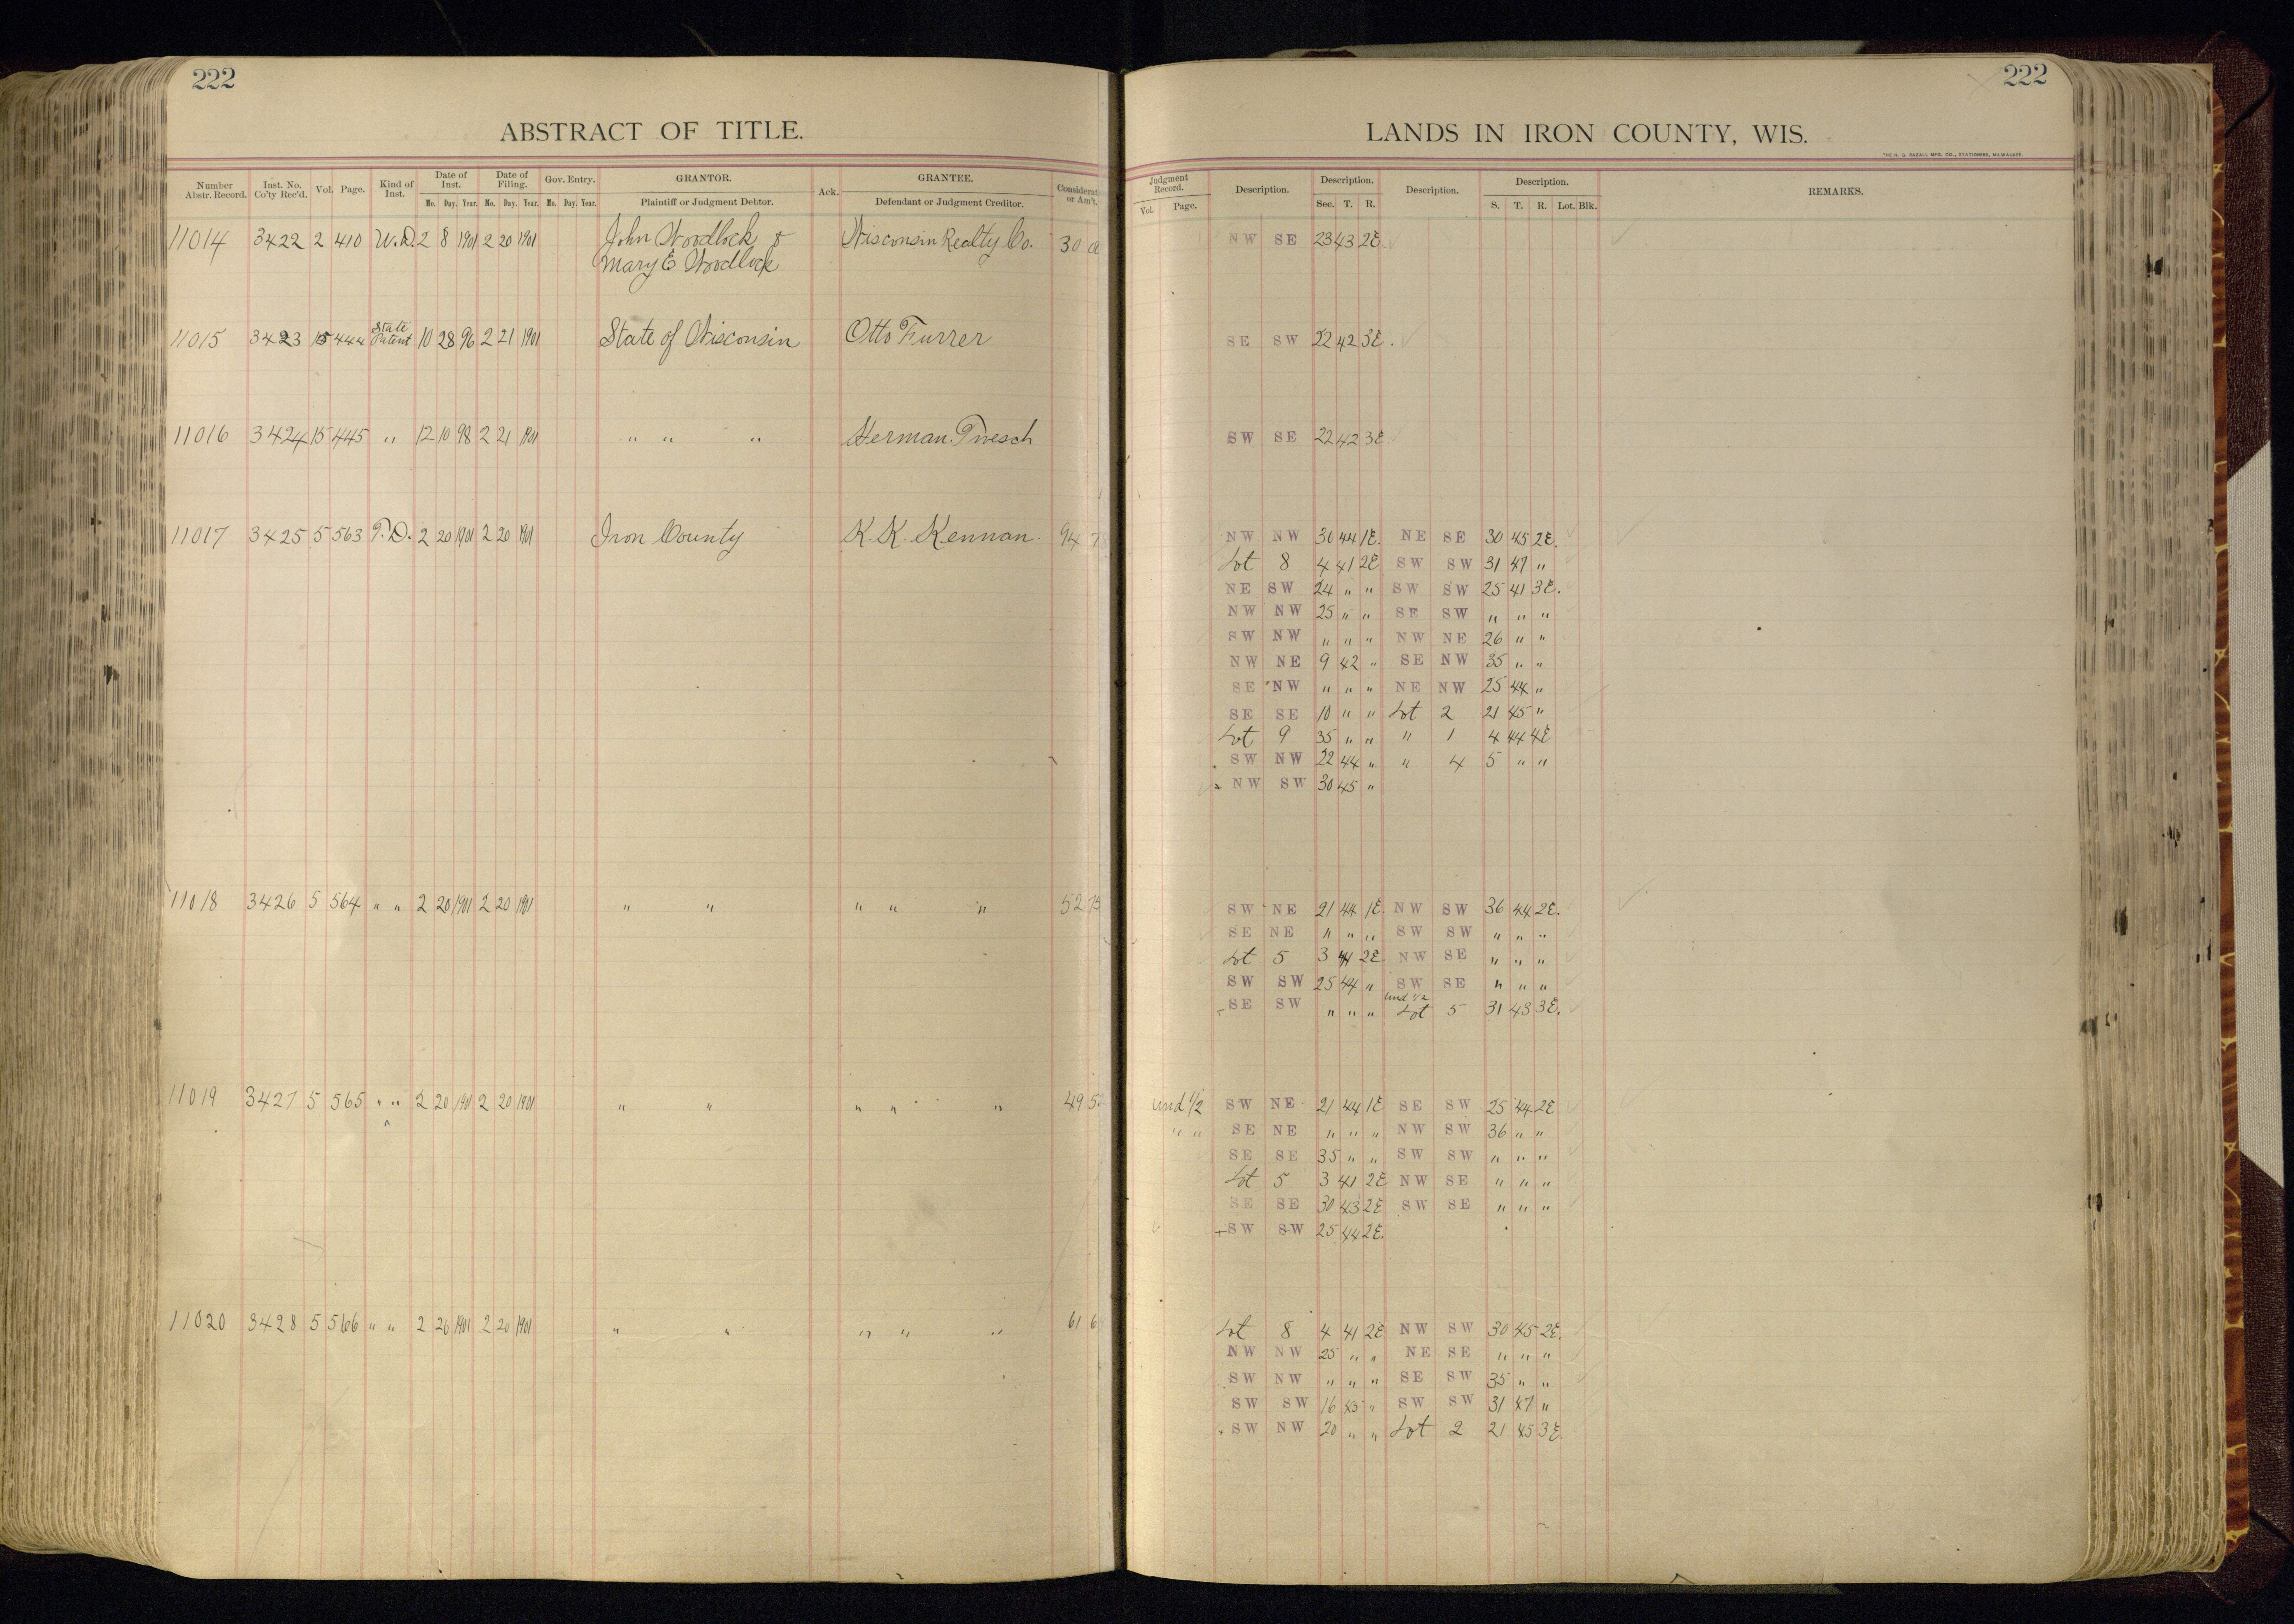 222
ABSTRACT OF TITLE.
Number Abstr. Record. Inst. No. Co'ty Rec'd. Vol. Page. Kind of Inst. Date of Inst. Mo. Day. Year. Date of Filing. Mo. Day. Year. Gov. Entry. Mo. Day. Year. GRANTOR. Plaintiff or Judgment Debtor. Ack. GRANTEE. Defendant or Judgment Creditor. Considerat or Am't.
11014 3422 2 410 W.D. 2 8 1901 2 20 1901 John Woodlock & Wisconsin Realty Co. 30 00
Mary E Woodlock
11015 3423 15 444 State Patent 10 28 96 2 21 1901 State of Wisconsin Otto Furrer
11016 3424 15 445 " 12 10 98 2 21 1901 " " " Herman
11017 3425 5 563 T.D. 2 20 1901 2 20 1901 Iron County K. K. Kennan. 94
11018 3426 5 564 " " 2 20 1901 2 20 1901 " " " " " 52 75
11019 3427 5 565 " " 2 20 1901 2 20 1901 " " " " " 49
11020 3428 5 566 " " 2 20 1901 2 20 1901 " " " " " 61
222
LANDS IN IRON COUNTY, WIS.
THE H. G. RAZALL MFG. CO., STATIONERS, MILWAUKEE.
Judgment Record. Vol. Page. Description. Description. Sec. T. R. Description. Description. S. T. R. Lot. Blk. REMARKS.
NW SE 23 43 2E.
SE SW 22 42 3E.
SW SE 22 42 3E
NW NW 30 44 1E. NE SE 30 45 2E.
Lot 8 4 41 2E SW SW 31 47 "
NE SW 24 " " SW SW 25 41 3E.
NW NW 25 " " SE SW " " "
SW NW " " " NW NE 26 " "
NW NE 9 42 " SE NW 35 " "
SE NW " " " NE NW 25 44 "
SE SE 10 " " Lot 2 21 45 "
Lot 9 35 " " " 1 4 44 4E
SW NW 22 44 " " 4 5 " "
NW SW 30 45 "
SW NE 21 44 1E. NW SW 36 44 2E.
SE NE " " " SW SW " " "
Lot 5 3 41 2E NW SE " " "
SW SW 25 44 " SW SE " " "
und 1/2
SE SW " " " Lot 5 31 43 3E.
und 1/2 SW NE 21 44 1E SE SW 25 44 2E
" " SE NE " " " NW SW 36 " "
SE SE 35 " " SW SW " " "
Lot 5 3 41 2E NW SE " " "
SE SE 30 43 2E SW SE " " "
SW SW 25 44 2E.
Lot 8 4 41 2E NW SW 30 45 2E.
NW NW 25 " " NE SE " " "
SW NW " " " SE SW 35 " "
SW SW 16 45 " SW SW 31 47 "
SW NW 20 " " Lot 2 21 45 3E.